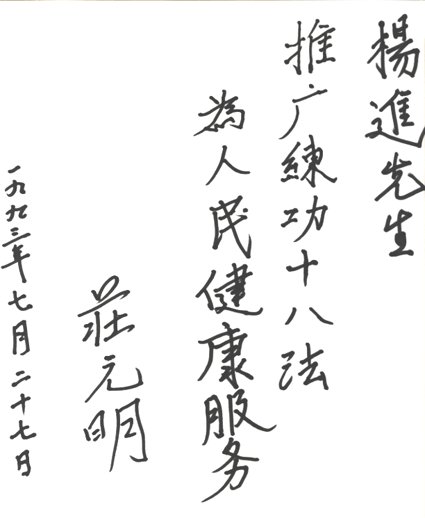 楊進先生
推广練功十八法
為人民健康服务
莊元明
一九九三年七月二十七日